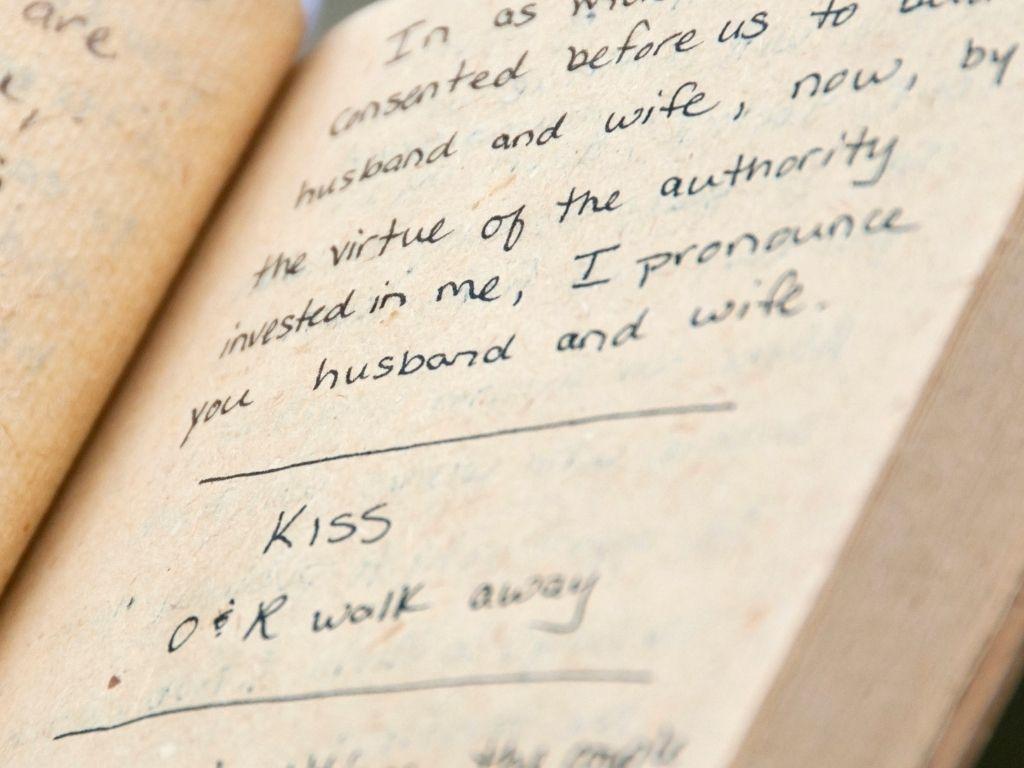 are
In as
consented before us to
husband and wife, now, by
the virtue of the authority
invested in me, I pronounce
you husband and wife.
KISS
O & R walk away
the